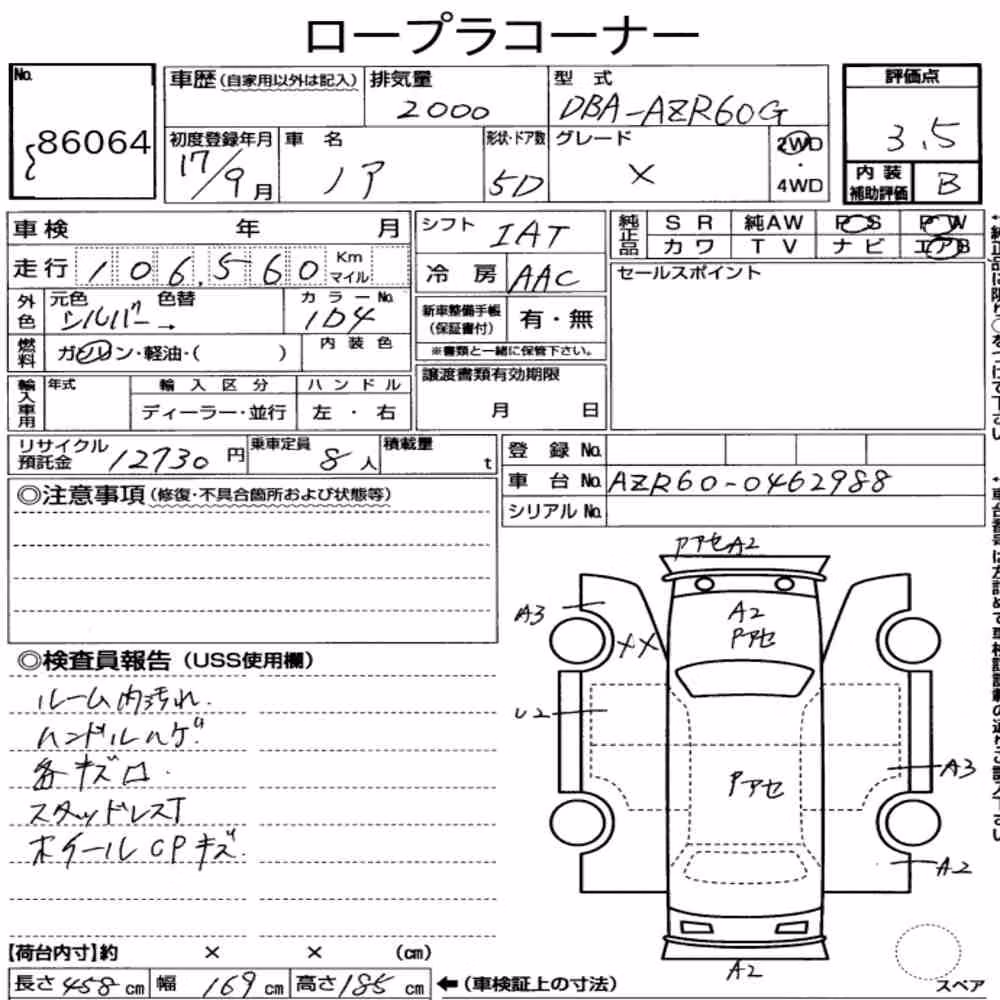 ロープラコーナー
No. 86064
車歴 (自家用以外は記入) 排気量 2000 型式 DBA-AZR60G
初度登録年月 17/9月 車名 ノア 形状・ドア数 5D グレード X 2WD・4WD
評価点 3.5
内装補助評価 B
車検 年 月
走行 106,560 Km マイル
外色 元色 シルバー→ 色替 カラーNo. 1D4
燃料 ガソリン・軽油・( ) 内装色
輸入車用 年式 輸入区分 ディーラー・並行 ハンドル 左・右
シフト IAT
冷房 AAC
新車整備手帳 (保証書付) 有・無
※書類と一緒に保管下さい。
譲渡書類有効期限
月 日
純正品 SR 純AW PS PW
カワ TV ナビ エアB
セールスポイント
リサイクル預託金 12730円 乗車定員 8人 積載量 t
登録No.
車台No. AZR60-0462988
シリアルNo.
◎注意事項 (修復・不具合箇所および状態等)
◎検査員報告 (USS使用欄)
ルーム内汚れ.
ハンドルハゲ
各キズロ.
スタッドレスT
ホイールCPキズ.
PアセA2
A3
XX
A2
Pアセ
U2
Pアセ
A3
A2
A2
スペア
【荷台内寸】約 × × (cm)
長さ 458 cm 幅 169 cm 高さ 185 cm ←(車検証上の寸法)